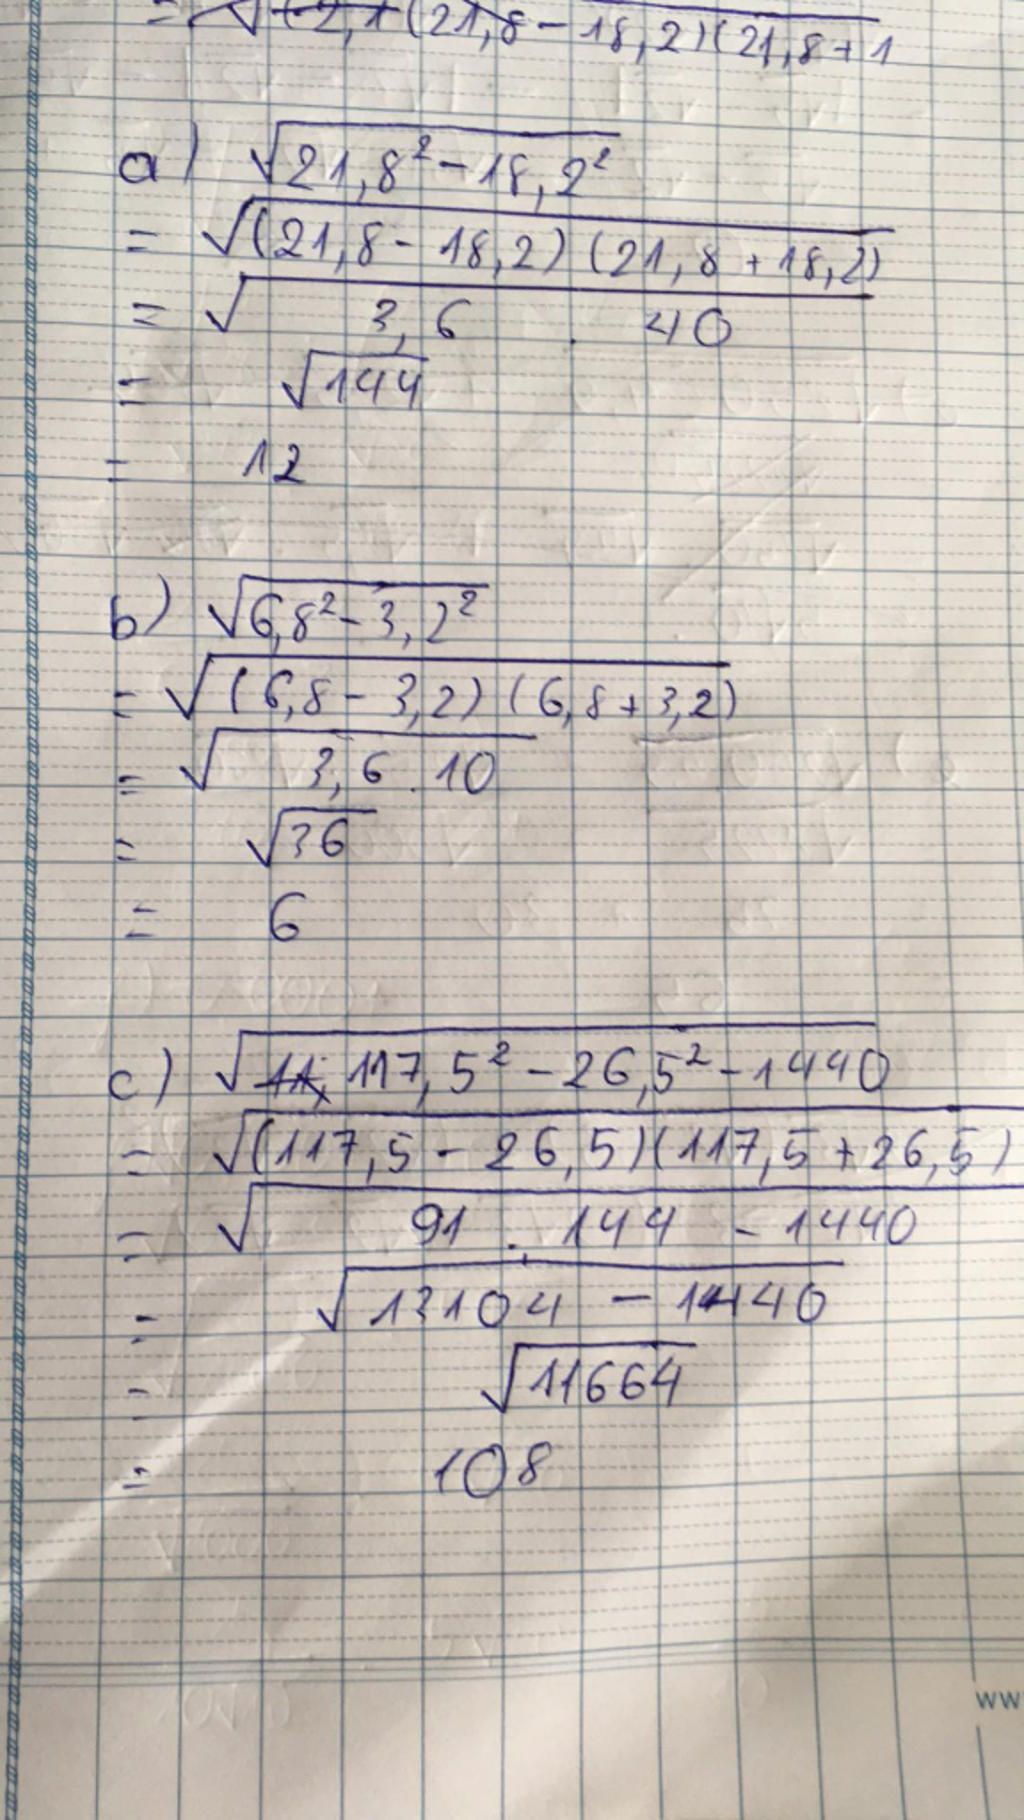 = √(21,8 - 18,2)(21,8 + 1
a) √21,8² - 18,2²
= √(21,8 - 18,2) (21,8 + 18,2)
= √ 3,6 . 40
= √144
= 12
b) √6,8² - 3,2²
= √(6,8 - 3,2) (6,8 + 3,2)
= √ 3,6 . 10
= √36
= 6
c) √117,5² - 26,5² - 1440
= √(117,5 - 26,5)(117,5 + 26,5)
= √ 91 . 144 - 1440
= √13104 - 1440
= √11664
= 108
ww